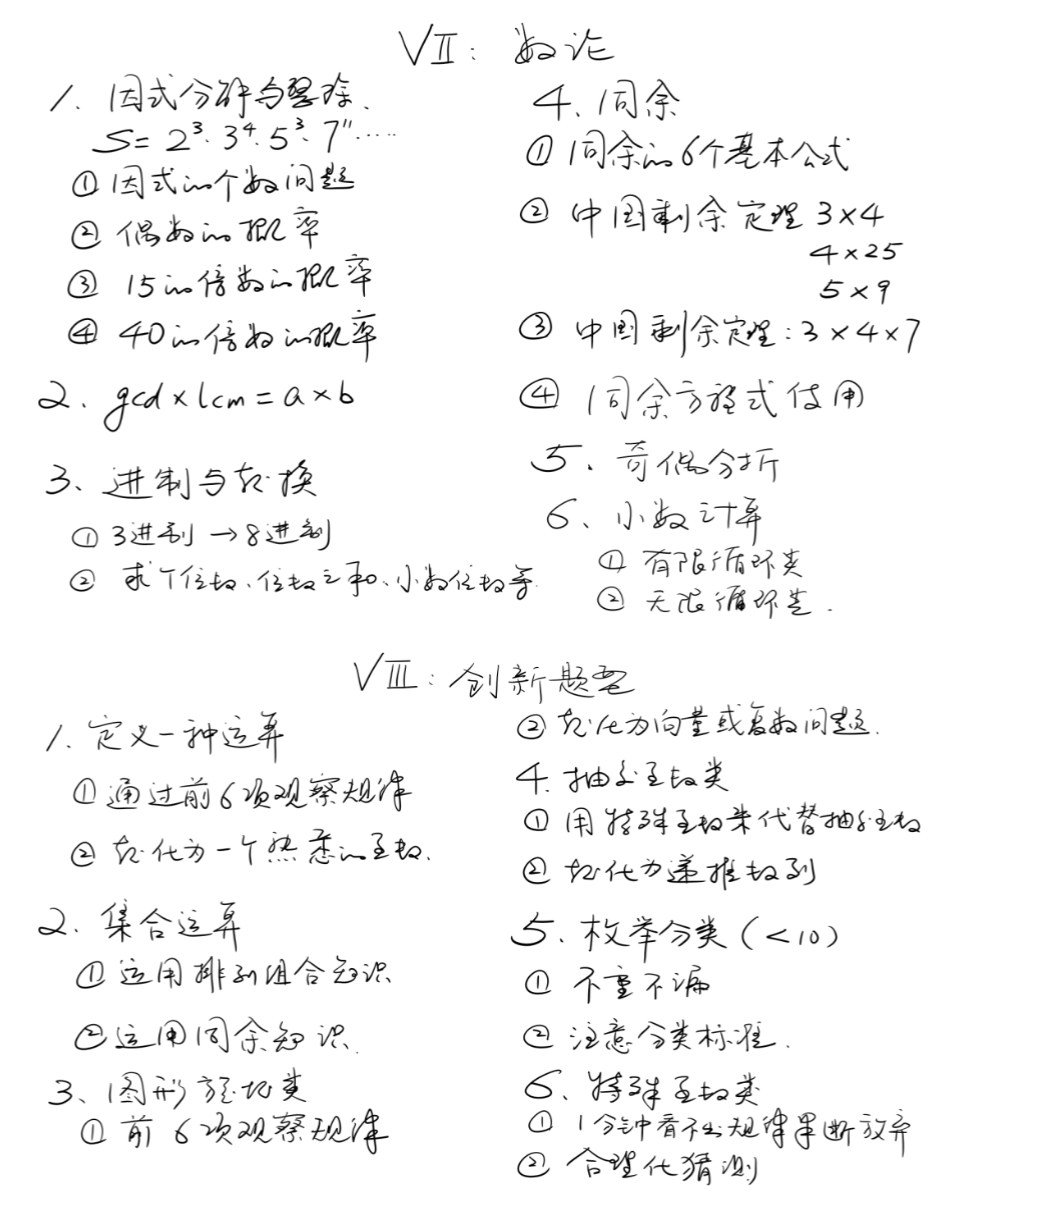 VII：数论
1、因式分解与整除.
S=2³·3⁴·5³·7¹¹……
① 因式的个数问题
② 偶数的概率
③ 15的倍数的概率
④ 40的倍数的概率
2、gcd×lcm=a×b
3、进制与转换
① 3进制→8进制
② 求个位数、位数之和、小数位数等.
4、同余
① 同余的6个基本公式
② 中国剩余定理 3×4
4×25
5×9
③ 中国剩余定理：3×4×7
④ 同余方程式使用
5、奇偶分析
6、小数计算
① 有限循环类
② 无限循环类.
VIII：创新题型
1、定义一种运算
① 通过前6项观察规律
② 转化为一个熟悉的函数.
2、集合运算
① 运用排列组合知识
② 运用同余知识.
3、图形旋转类
① 前6项观察规律
② 转化为向量或复数问题.
4、抽象函数类
① 用特殊函数来代替抽象函数
② 转化为递推数列
5、枚举分类（<10）
① 不重不漏
② 注意分类标准.
6、特殊函数类
① 1分钟看不出规律果断放弃
② 合理化猜测